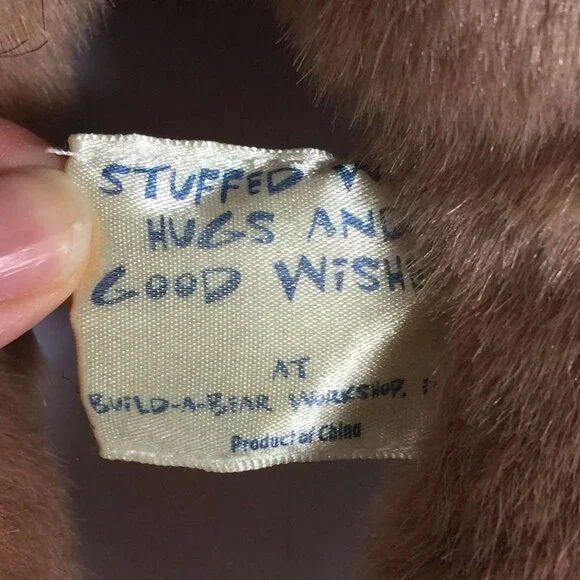 STUFFED
HUGS AND
GOOD WISH
AT
BUILD-A-BEAR WORKSHOP,
Product of China